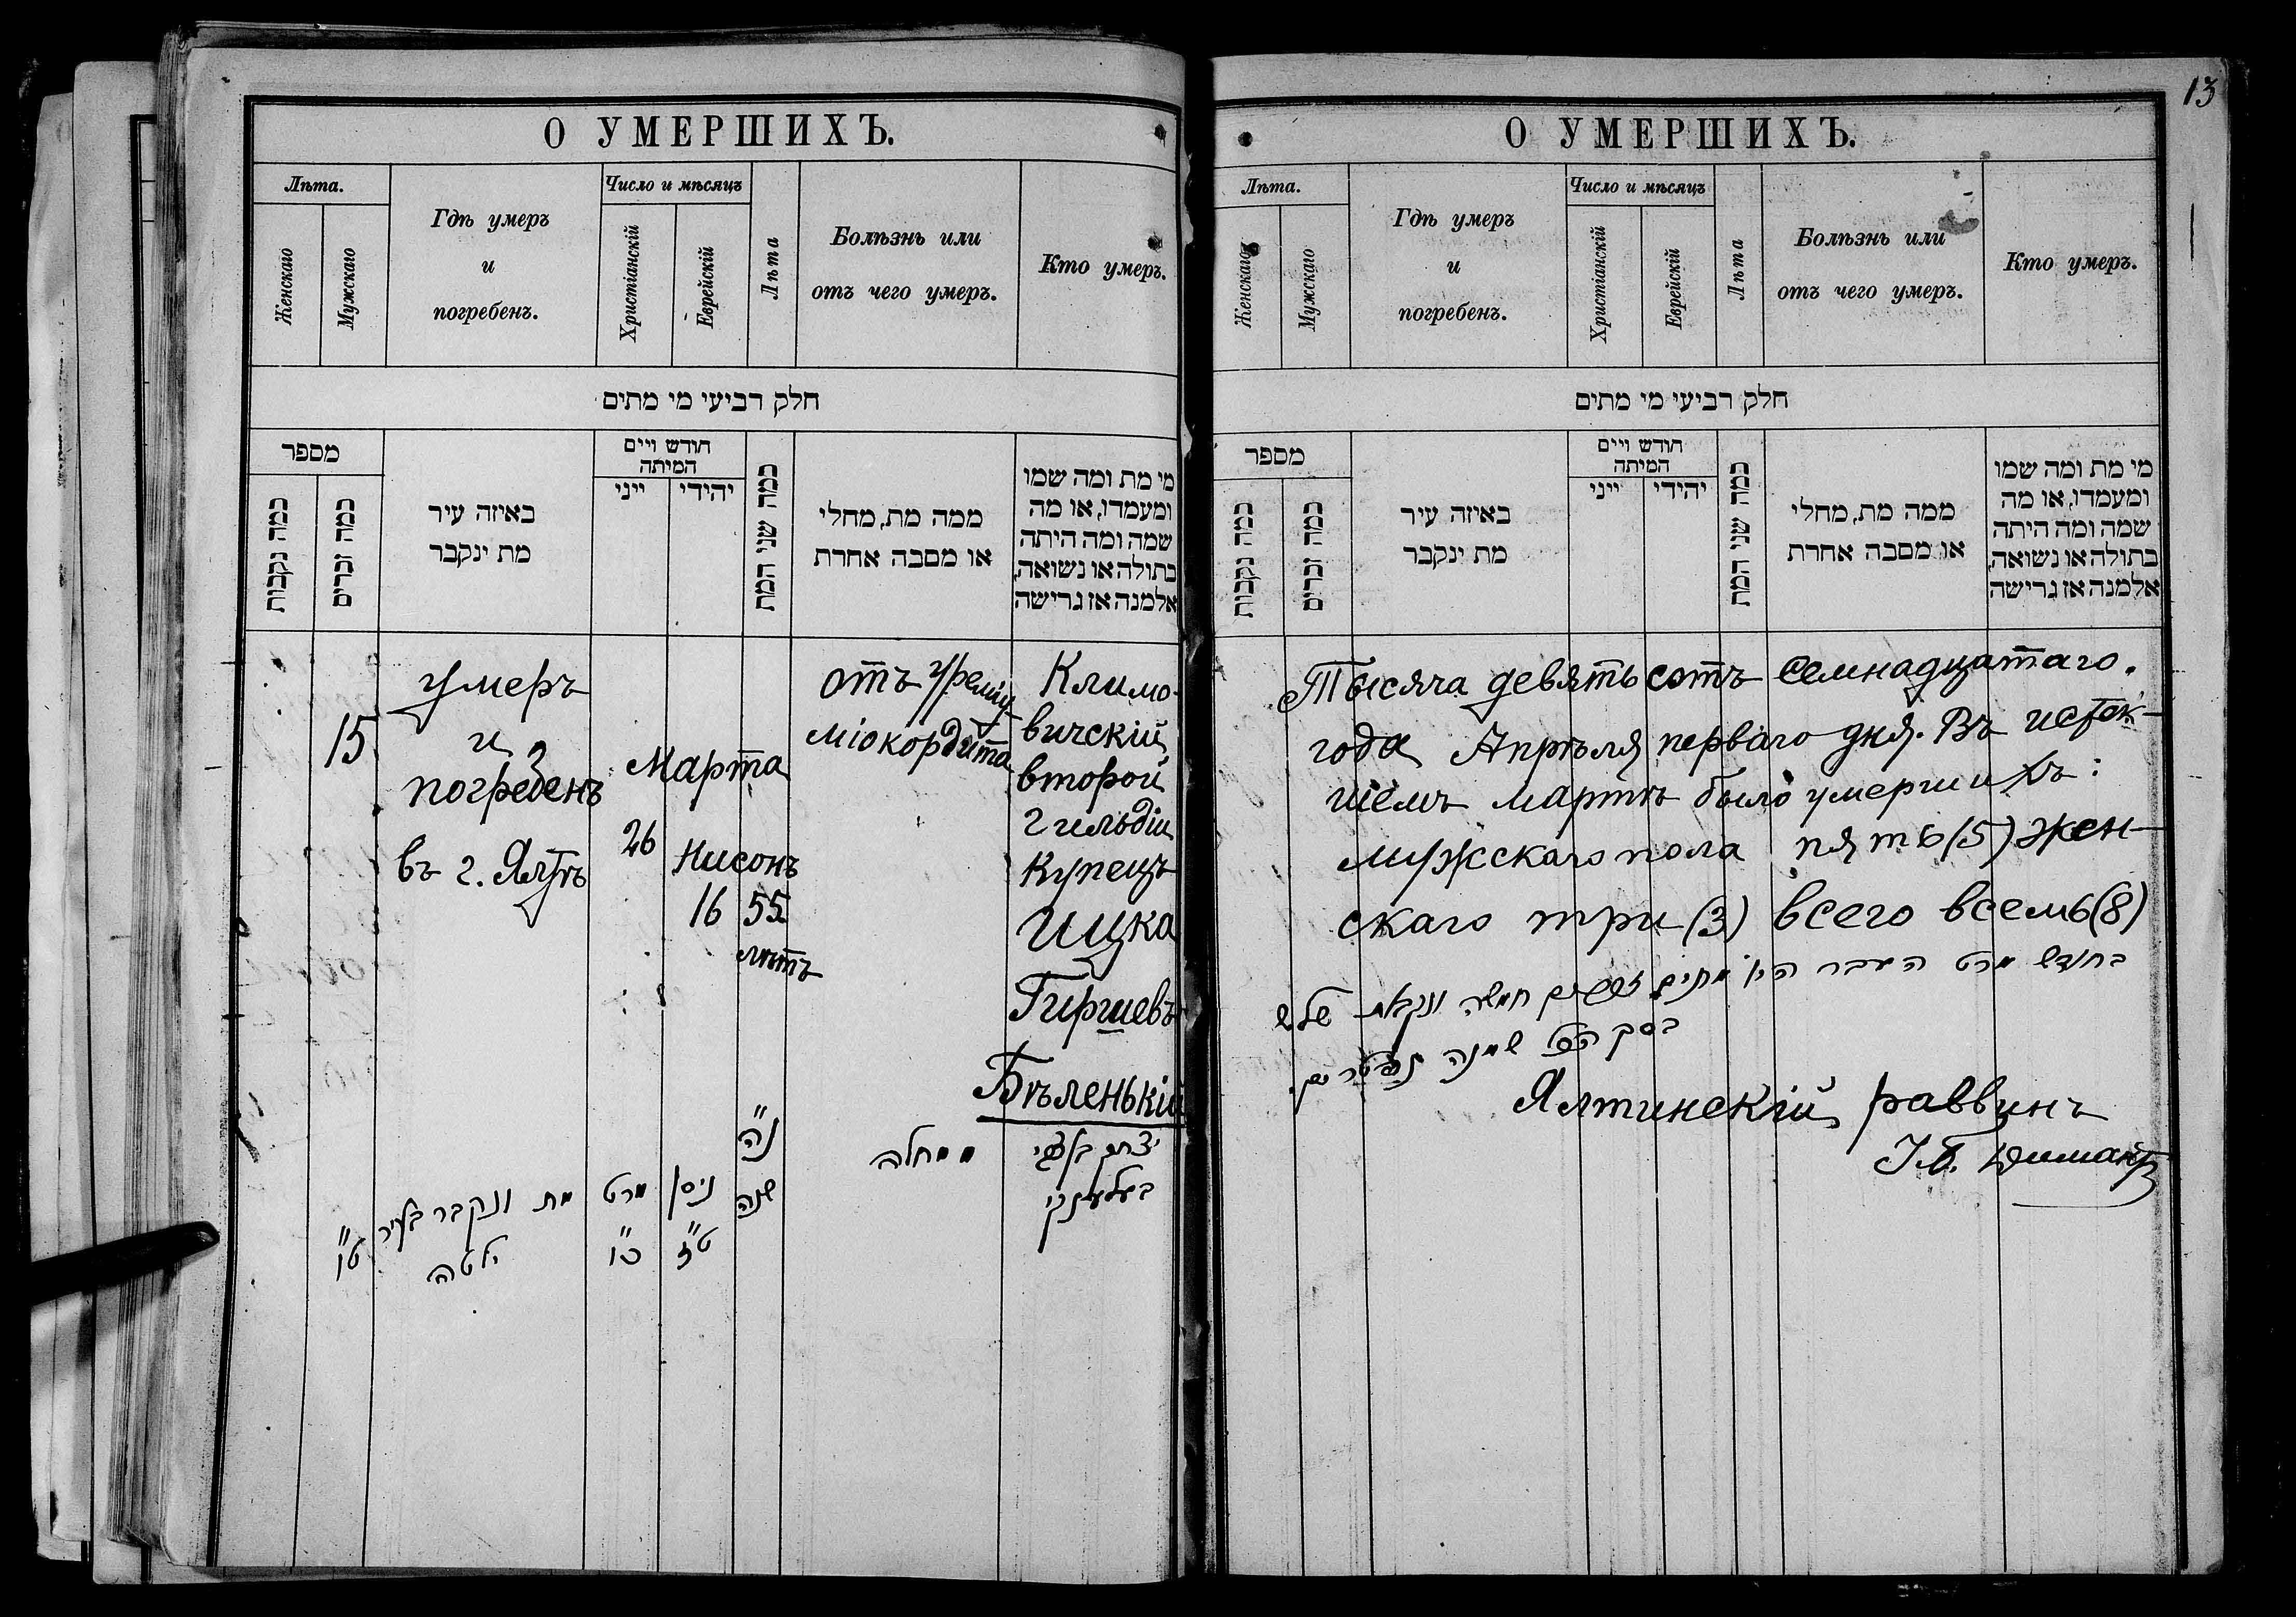 О УМЕРШИХЪ.
Лѣта.
Женскаго
Мужскаго
Гдѣ умеръ
и
погребенъ.
Число и мѣсяцъ
Христіанскій
Еврейскій
Лѣта
Болѣзнь или
отъ чего умеръ.
Кто умеръ.
חלק רביעי מי מתים
מספר
כמה נקבות
כמה זכרים
באיזה עיר
מת ינקבר
חודש ויים
המיתה
ייני
יהידי
כמה שני המת
ממה מת, מחלי
או מסבה אחרת
מי מת ומה שמו
ומעמדו, או מה
שמה ומה היתה
בתולה או נשואה,
אלמנה אז גרישה
15
умеръ
и
погребенъ
въ г. Ялтѣ
Марта
26
Нисонъ
16
55
лѣтъ
отъ
міокордита
Климо-
вичскій
второй
гильдіи
купецъ
Ицка
Гиршевъ
Бѣленькій
ט"ו
מת ונקבר בעיר
ילטה
מרט
כ"ו
ניסן
ט"ז
נ"ה
שנה
ממחלה
יצחק
13
О УМЕРШИХЪ.
Лѣта.
Женскаго
Мужскаго
Гдѣ умеръ
и
погребенъ.
Число и мѣсяцъ
Христіанскій
Еврейскій
Лѣта
Болѣзнь или
отъ чего умеръ.
Кто умеръ.
חלק רביעי מי מתים
מספר
כמה נקבות
כמה זכרים
באיזה עיר
מת ינקבר
חודש ויים
המיתה
ייני
יהידי
כמה שני המת
ממה מת, מחלי
או מסבה אחרת
מי מת ומה שמו
ומעמדו, או מה
שמה ומה היתה
בתולה או נשואה,
אלמנה אז גרישה
Тысяча девятьсотъ семнадцатаго.
года Апрѣля перваго дня. Въ истек-
шемъ мартѣ было умершихъ:
мужскаго пола пять (5) жен-
скаго три (3) всего всемь (8)
בחודש מרט העבר היו מתים חמשה ונקבות שלש
בסך הכל שמנה
Ялтинскій раввинъ